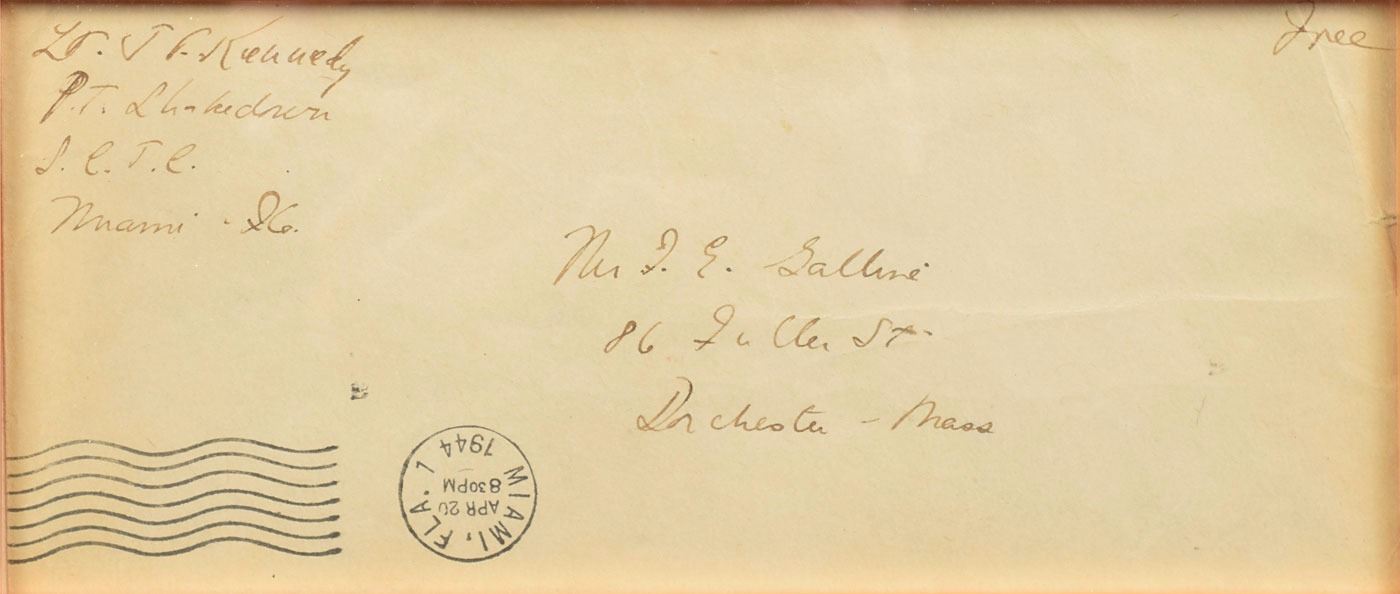 Lt. J F. Kennedy
P.T. Shakedown
S. C. T. C.
Miami - Fla.
Free
Mr F. E.
86 Fuller St-
Dorchester - Mass
MIAMI, FLA. 1
APR 20
830PM
1944